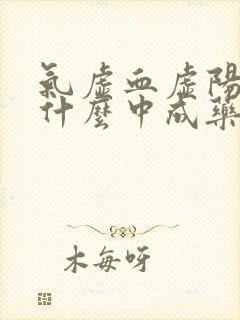 氣虛血虛陽
什麼中成藥
木每呀